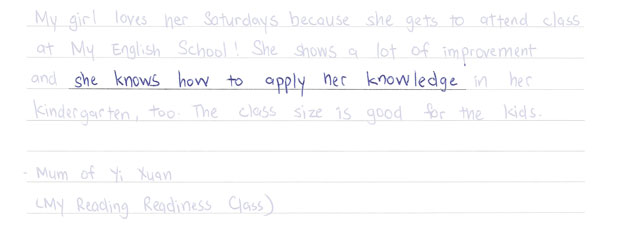 My girl loves her Saturdays because she gets to attend class
at My English School! She shows a lot of improvement
and she knows how to apply her knowledge in her
kindergarten, too. The class size is good for the kids.
- Mum of Yi Xuan
(My Reading Readiness Class)